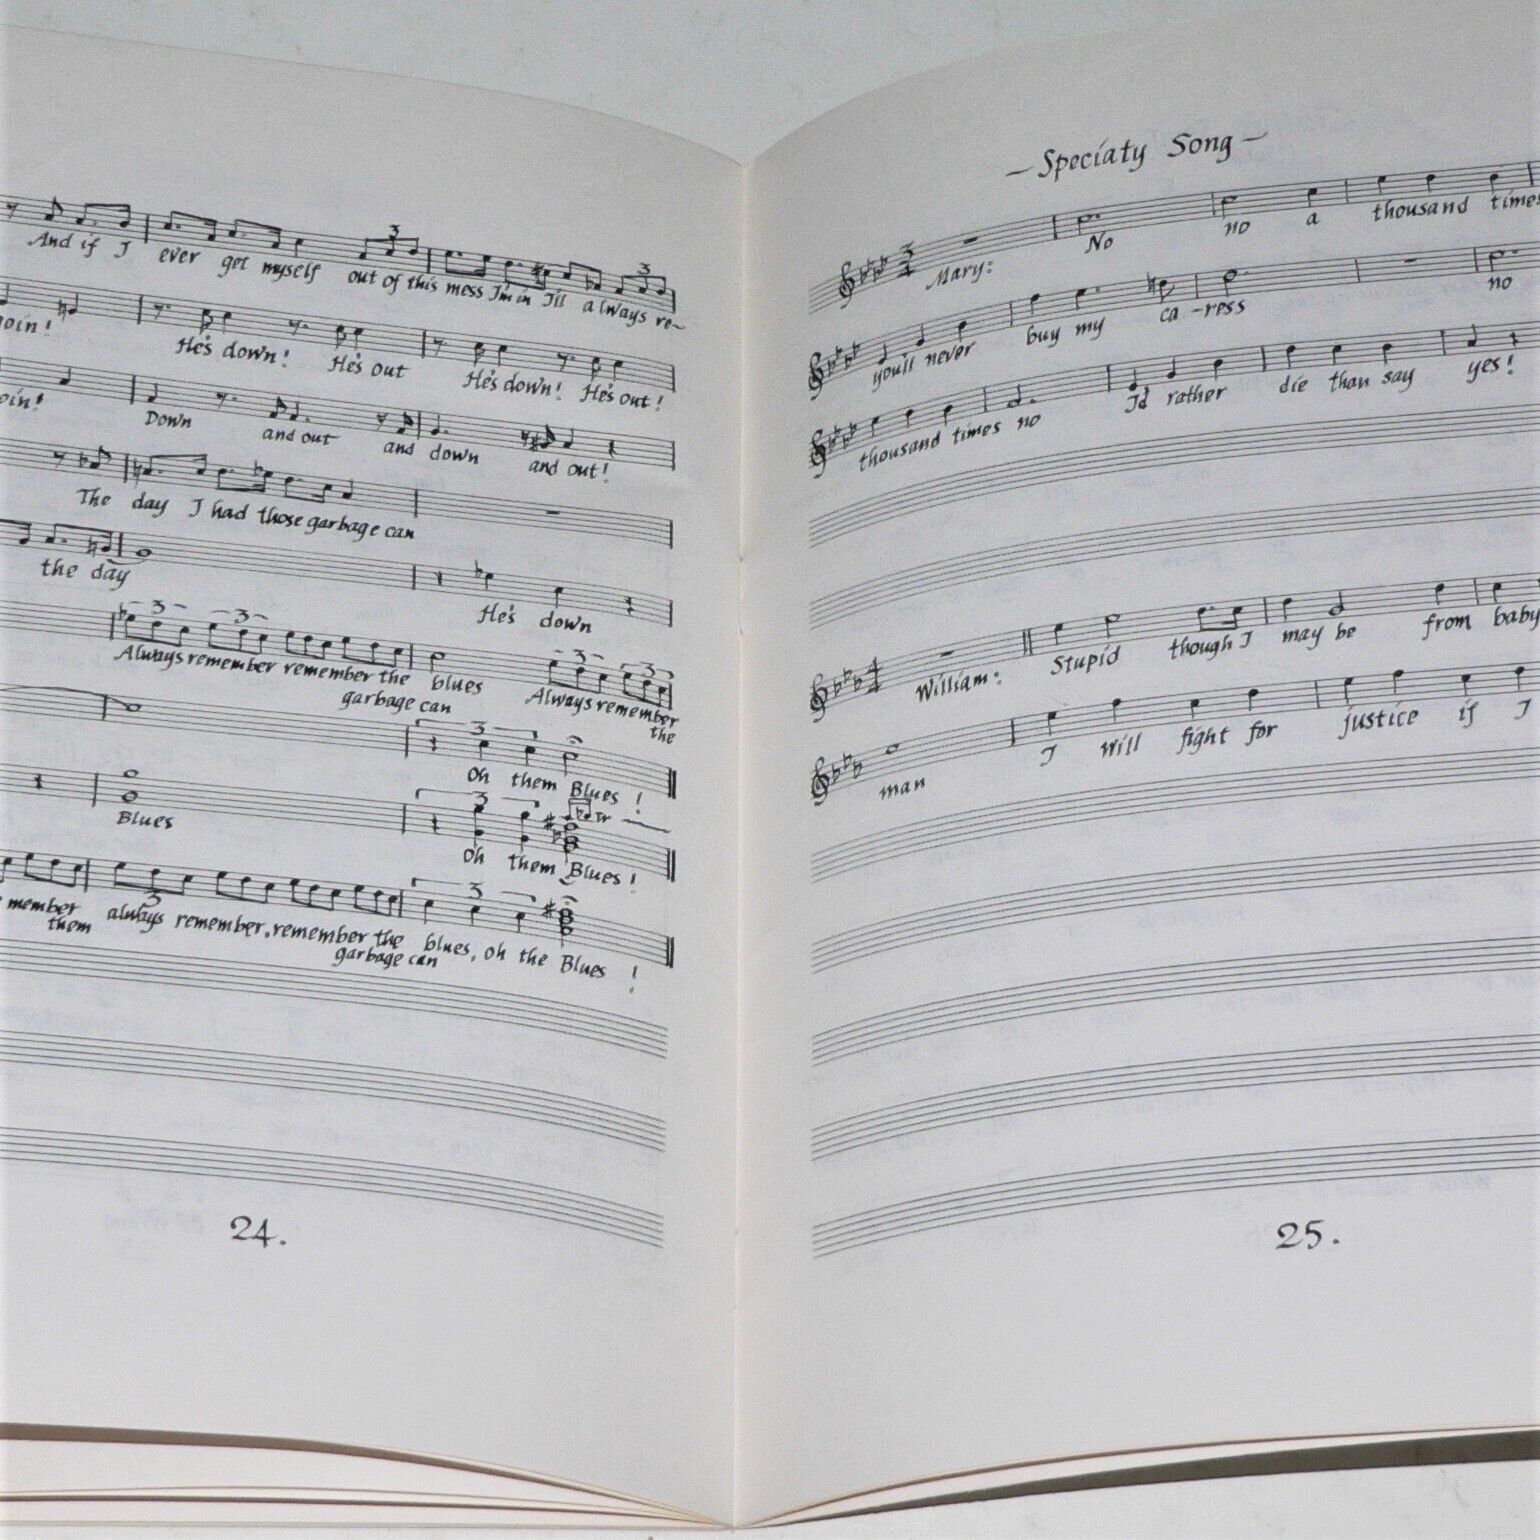 And if I ever get myself out of this mess I'm in I'll always re-
3 3
oin! He's down! He's out He's down! He's out!
oin! Down and out and down and out!
The day I had those garbage can
the day He's down
3 3 3 3
Always remember remember the blues Always remember
garbage can the
3
Oh them Blues!
3 Tr
Blues Oh them Blues!
3 3
member always remember, remember the blues, oh the Blues!
them garbage can
24.
- Speciaty Song -
3
4
Mary: No no a thousand times
you'll never buy my ca-ress no
thousand times no I'd rather die than say yes!
4
4
William: Stupid though I may be from baby
man I will fight for justice if I
25.